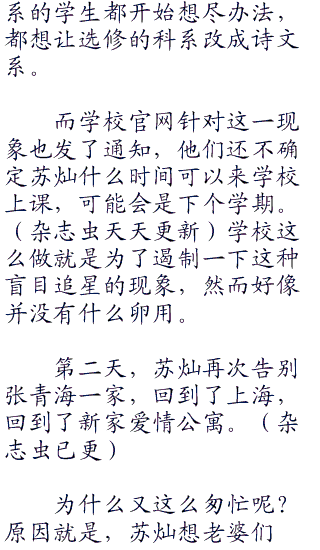 系的学生都开始想尽办法，
都想让选修的科系改成诗文
系。
而学校官网针对这一现
象也发了通知，他们还不确
定苏灿什么时间可以来学校
上课，可能会是下个学期。
（杂志虫天天更新）学校这
么做就是为了遏制一下这种
盲目追星的现象，然而好像
并没有什么卵用。
第二天，苏灿再次告别
张青海一家，回到了上海，
回到了新家爱情公寓。（杂
志虫已更）
为什么又这么匆忙呢？
原因就是，苏灿想老婆们